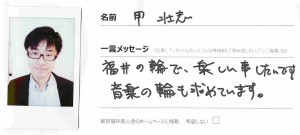 名前 甲 壮志
一言メッセージ
福井の輪で、楽しい事したいです
音楽の輪も求めています。
東京福井県人会のホームページに掲載 希望しない □